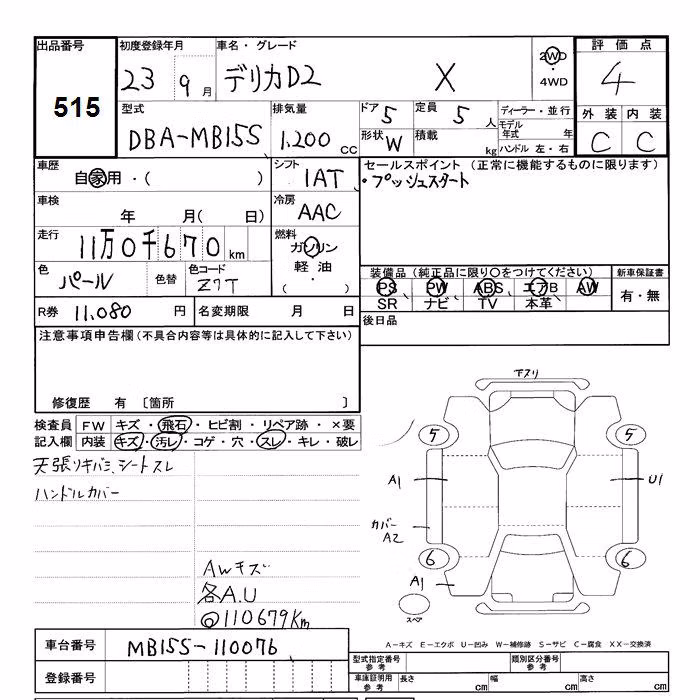 出品番号 初度登録年月 車名・グレード 2WD ・ 4WD 評価点
515 23 9月 デリカD2 X 4
型式 排気量 ドア 5 定員 5 人 ディーラー・並行 外装 内装
DBA-MB15S 1.200 cc 形状 W 積載 kg モデル年式 年 ハンドル 左・右 C C
車歴 自家用・( ) シフト 1AT セールスポイント (正常に機能するものに限ります)
・プッシュスタート
車検 年 月( 日) 冷房 AAC
走行 11万0千670km 燃料 ガソリン 軽油・( )
色 パール 色替 色コード Z7T 装備品(純正品に限り○をつけてください) 新車保証書
PS PW ABS エアB AW 有・無
SR ナビ TV 本革
R券 11.080 円 名変期限 月 日 後日品
注意事項申告欄(不具合内容等は具体的に記入して下さい)
修復歴 有 〔箇所 〕
検査員 FW キズ・飛石・ヒビ割・リペア跡・×要
記入欄 内装 キズ・汚レ・コゲ・穴・スレ・キレ・破レ
天張リキバミ、シートスレ
ハンドルカバー
AWキズ
各A.U
◎110679Km
下スリ
5 5
A1 U1
カバー
A2
6 6
A1
スペア
A-キズ E-エクボ U-凹み W-補修跡 S-サビ C-腐食 XX-交換済
車台番号 MB15S-110076
登録番号
型式指定番号 参考 類別区分番号 参考
車庫証明用 参考 長さ cm 幅 cm 高さ cm